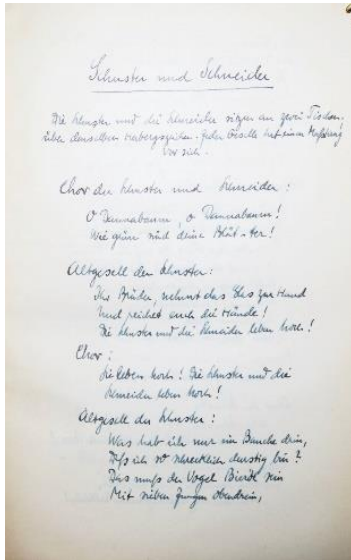 Schuster und Schneider
Die Schuster und die Schneider sitzen an zwei Tischen,
über denselben Herbergszeichen. Jeder Geselle hat einen
vor sich.
Chor der Schuster und Schneider:
O Dannabaum, o Dannabaum!
Wie grün sind deine Blät-ter!
Altgesell der Schuster:
Ihr Brüder, nehmt das Glas zur Hand
Und reichet euch die Hände!
Die Schuster und die Schneider leben hoch!
Chor:
Sie leben hoch! Die Schuster und die
Schneider leben hoch!
Altgesell der Schuster:
Was hab ich nur im Bauche drin,
Daß ich so schrecklich durstig bin?
Das muß der Vogel Bierolt sein
Mit sieben Jungen obendrein,